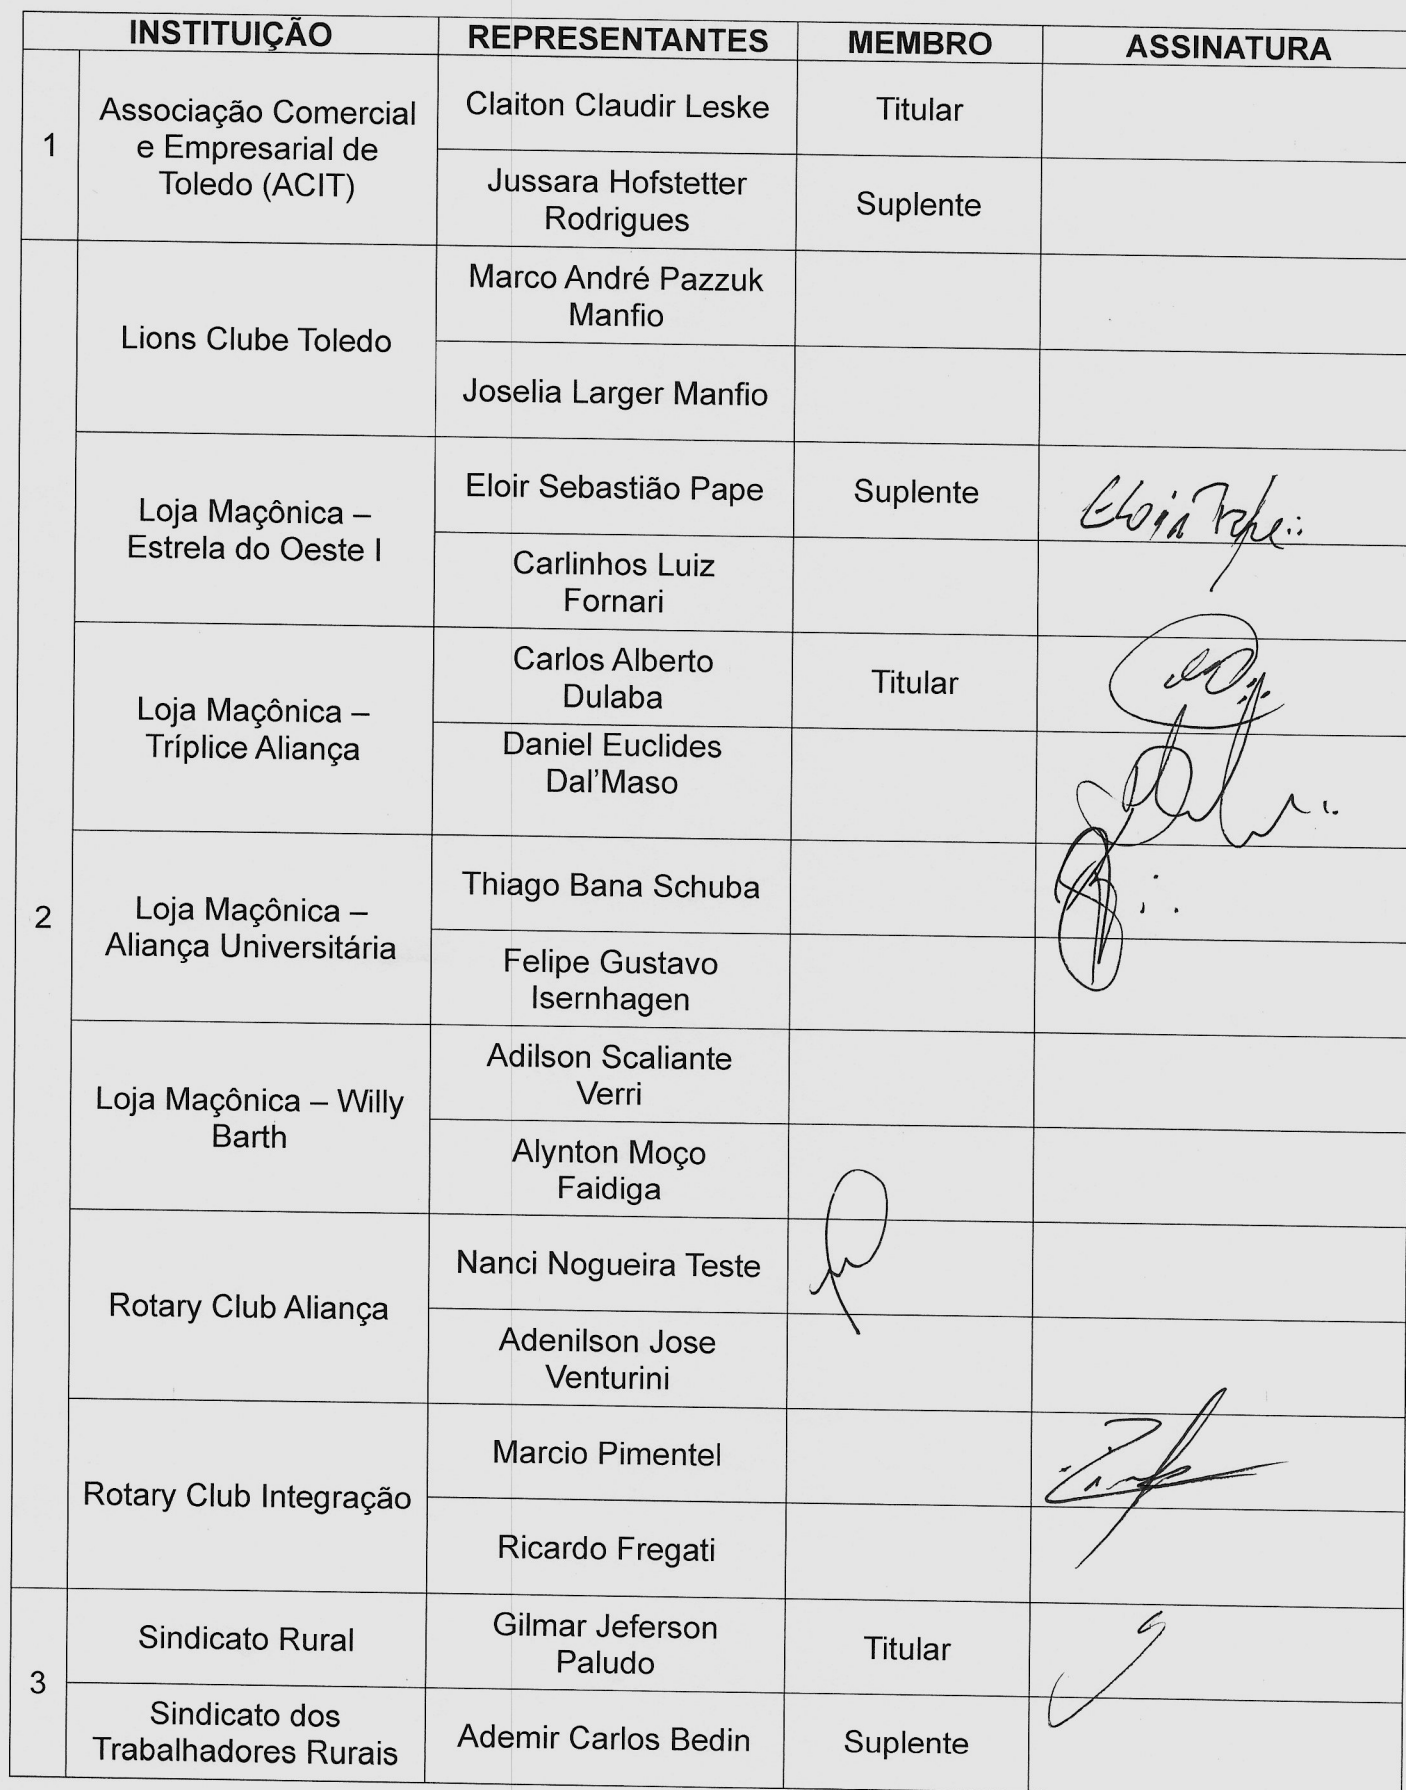 INSTITUIÇÃO REPRESENTANTES MEMBRO ASSINATURA
1
Associação Comercial
e Empresarial de
Toledo (ACIT)
Claiton Claudir Leske
Titular
Jussara Hofstetter
Rodrigues
Suplente
2
Lions Clube Toledo
Marco André Pazzuk
Manfio
Joselia Larger Manfio
Loja Maçônica –
Estrela do Oeste I
Eloir Sebastião Pape
Suplente
Eloir Pape
Carlinhos Luiz
Fornari
Loja Maçônica –
Tríplice Aliança
Carlos Alberto
Dulaba
Titular
Daniel Euclides
Dal’Maso
Loja Maçônica –
Aliança Universitária
Thiago Bana Schuba
Felipe Gustavo
Isernhagen
Loja Maçônica – Willy
Barth
Adilson Scaliante
Verri
Alynton Moço
Faidiga
Rotary Club Aliança
Nanci Nogueira Teste
Adenilson Jose
Venturini
Rotary Club Integração
Marcio Pimentel
Ricardo Fregati
3
Sindicato Rural
Gilmar Jeferson
Paludo
Titular
Sindicato dos
Trabalhadores Rurais
Ademir Carlos Bedin
Suplente